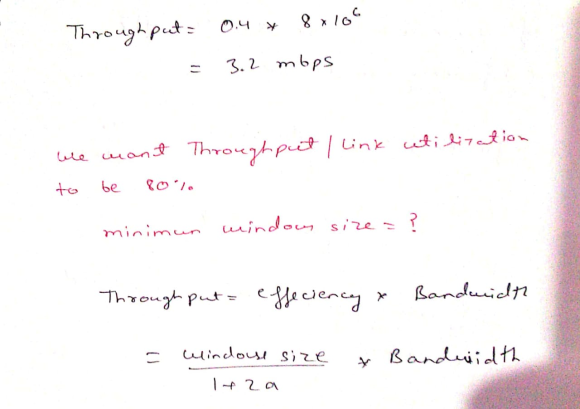 Throughput = 0.4 * 8 x 10^6
= 3.2 mbps
We want Throughput / Link utilization
to be 80%
minimun window size = ?
Throughput = effeciency * Bandwidth
= window size / 1 + 2a * Bandwidth